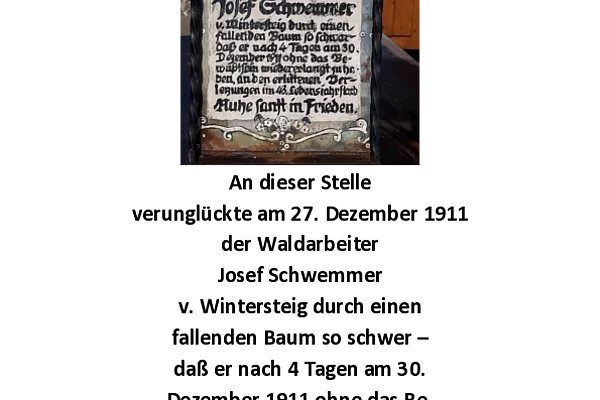 Josef Schwemmer
v. Wintersteig durch einen
fallenden Baum so schwer-
daß er nach 4 Tagen am 30.
Dezember 1911 ohne das Be-
wußtsein wiedererlangt zu ha-
ben, an den erlittenen Ver-
letzungen im 43. Lebensjahr starb
Ruhe sanft in Frieden.
An dieser Stelle
verunglückte am 27. Dezember 1911
der Waldarbeiter
Josef Schwemmer
v. Wintersteig durch einen
fallenden Baum so schwer –
daß er nach 4 Tagen am 30.
Dezember 1911 ohne das Be-